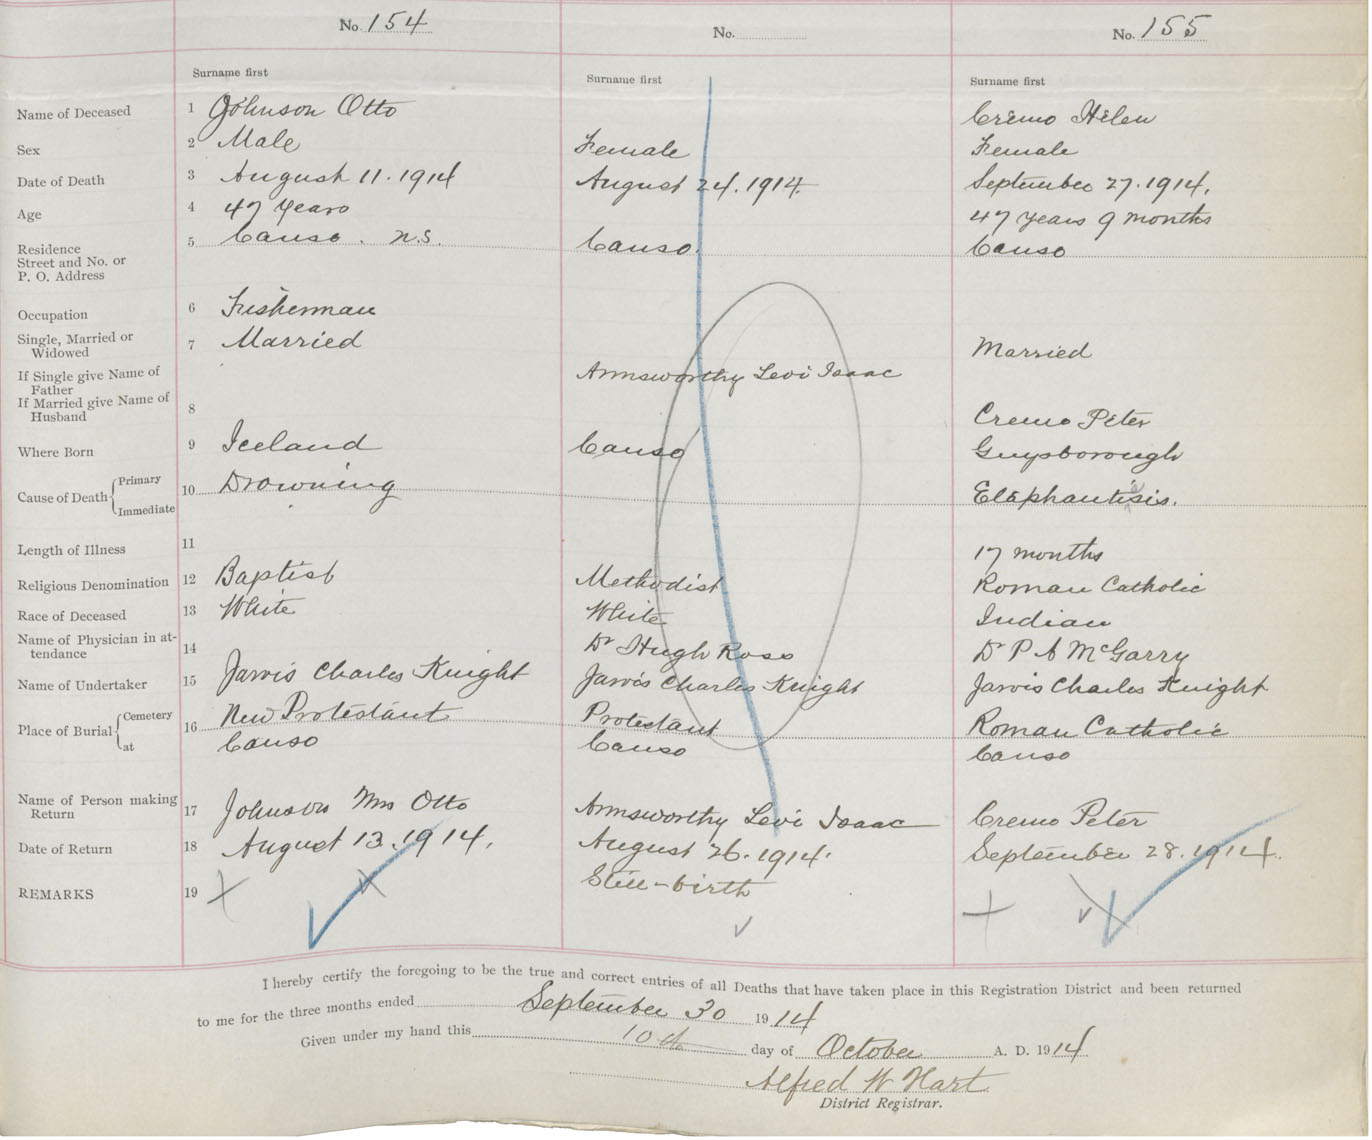 No. 154 No. No. 155
Surname first Surname first Surname first
Name of Deceased 1 Johnson Otto Cremo Helen
Sex 2 Male Female Female
Date of Death 3 August 11. 1914 August 24. 1914. September 27. 1914.
Age 4 47 years 47 years 9 months
Residence 5 Canso. N.S. Canso. Canso
Street and No. or
P. O. Address
Occupation 6 Fisherman
Single, Married or
Widowed 7 Married Married
If Single give Name of
Father Armsworthy Levi Isaac
If Married give Name of
Husband 8 Cremo Peter
Where Born 9 Iceland Canso Guysborough
Cause of Death { Primary
Immediate 10 Drowning Elephantisis.
Length of Illness 11 17 months
Religious Denomination 12 Baptist Methodist Roman Catholic
Race of Deceased 13 White White Indian
Name of Physician in at-
tendance 14 Dr Hugh Ross Dr P A McGarry
Name of Undertaker 15 Jarvis Charles Knight Jarvis Charles Knight Jarvis Charles Knight
Place of Burial { Cemetery 16 New Protestant Protestant Roman Catholic
at Canso Canso Canso
Name of Person making
Return 17 Johnson Mrs Otto Armsworthy Levi Isaac Cremo Peter
Date of Return 18 August 13. 1914. August 26. 1914. September 28. 1914.
REMARKS 19 Still-birth
I hereby certify the foregoing to be the true and correct entries of all Deaths that have taken place in this Registration District and been returned
to me for the three months ended September 30 1914
Given under my hand this 10th day of October A. D. 1914
Alfred W Hart
District Registrar.